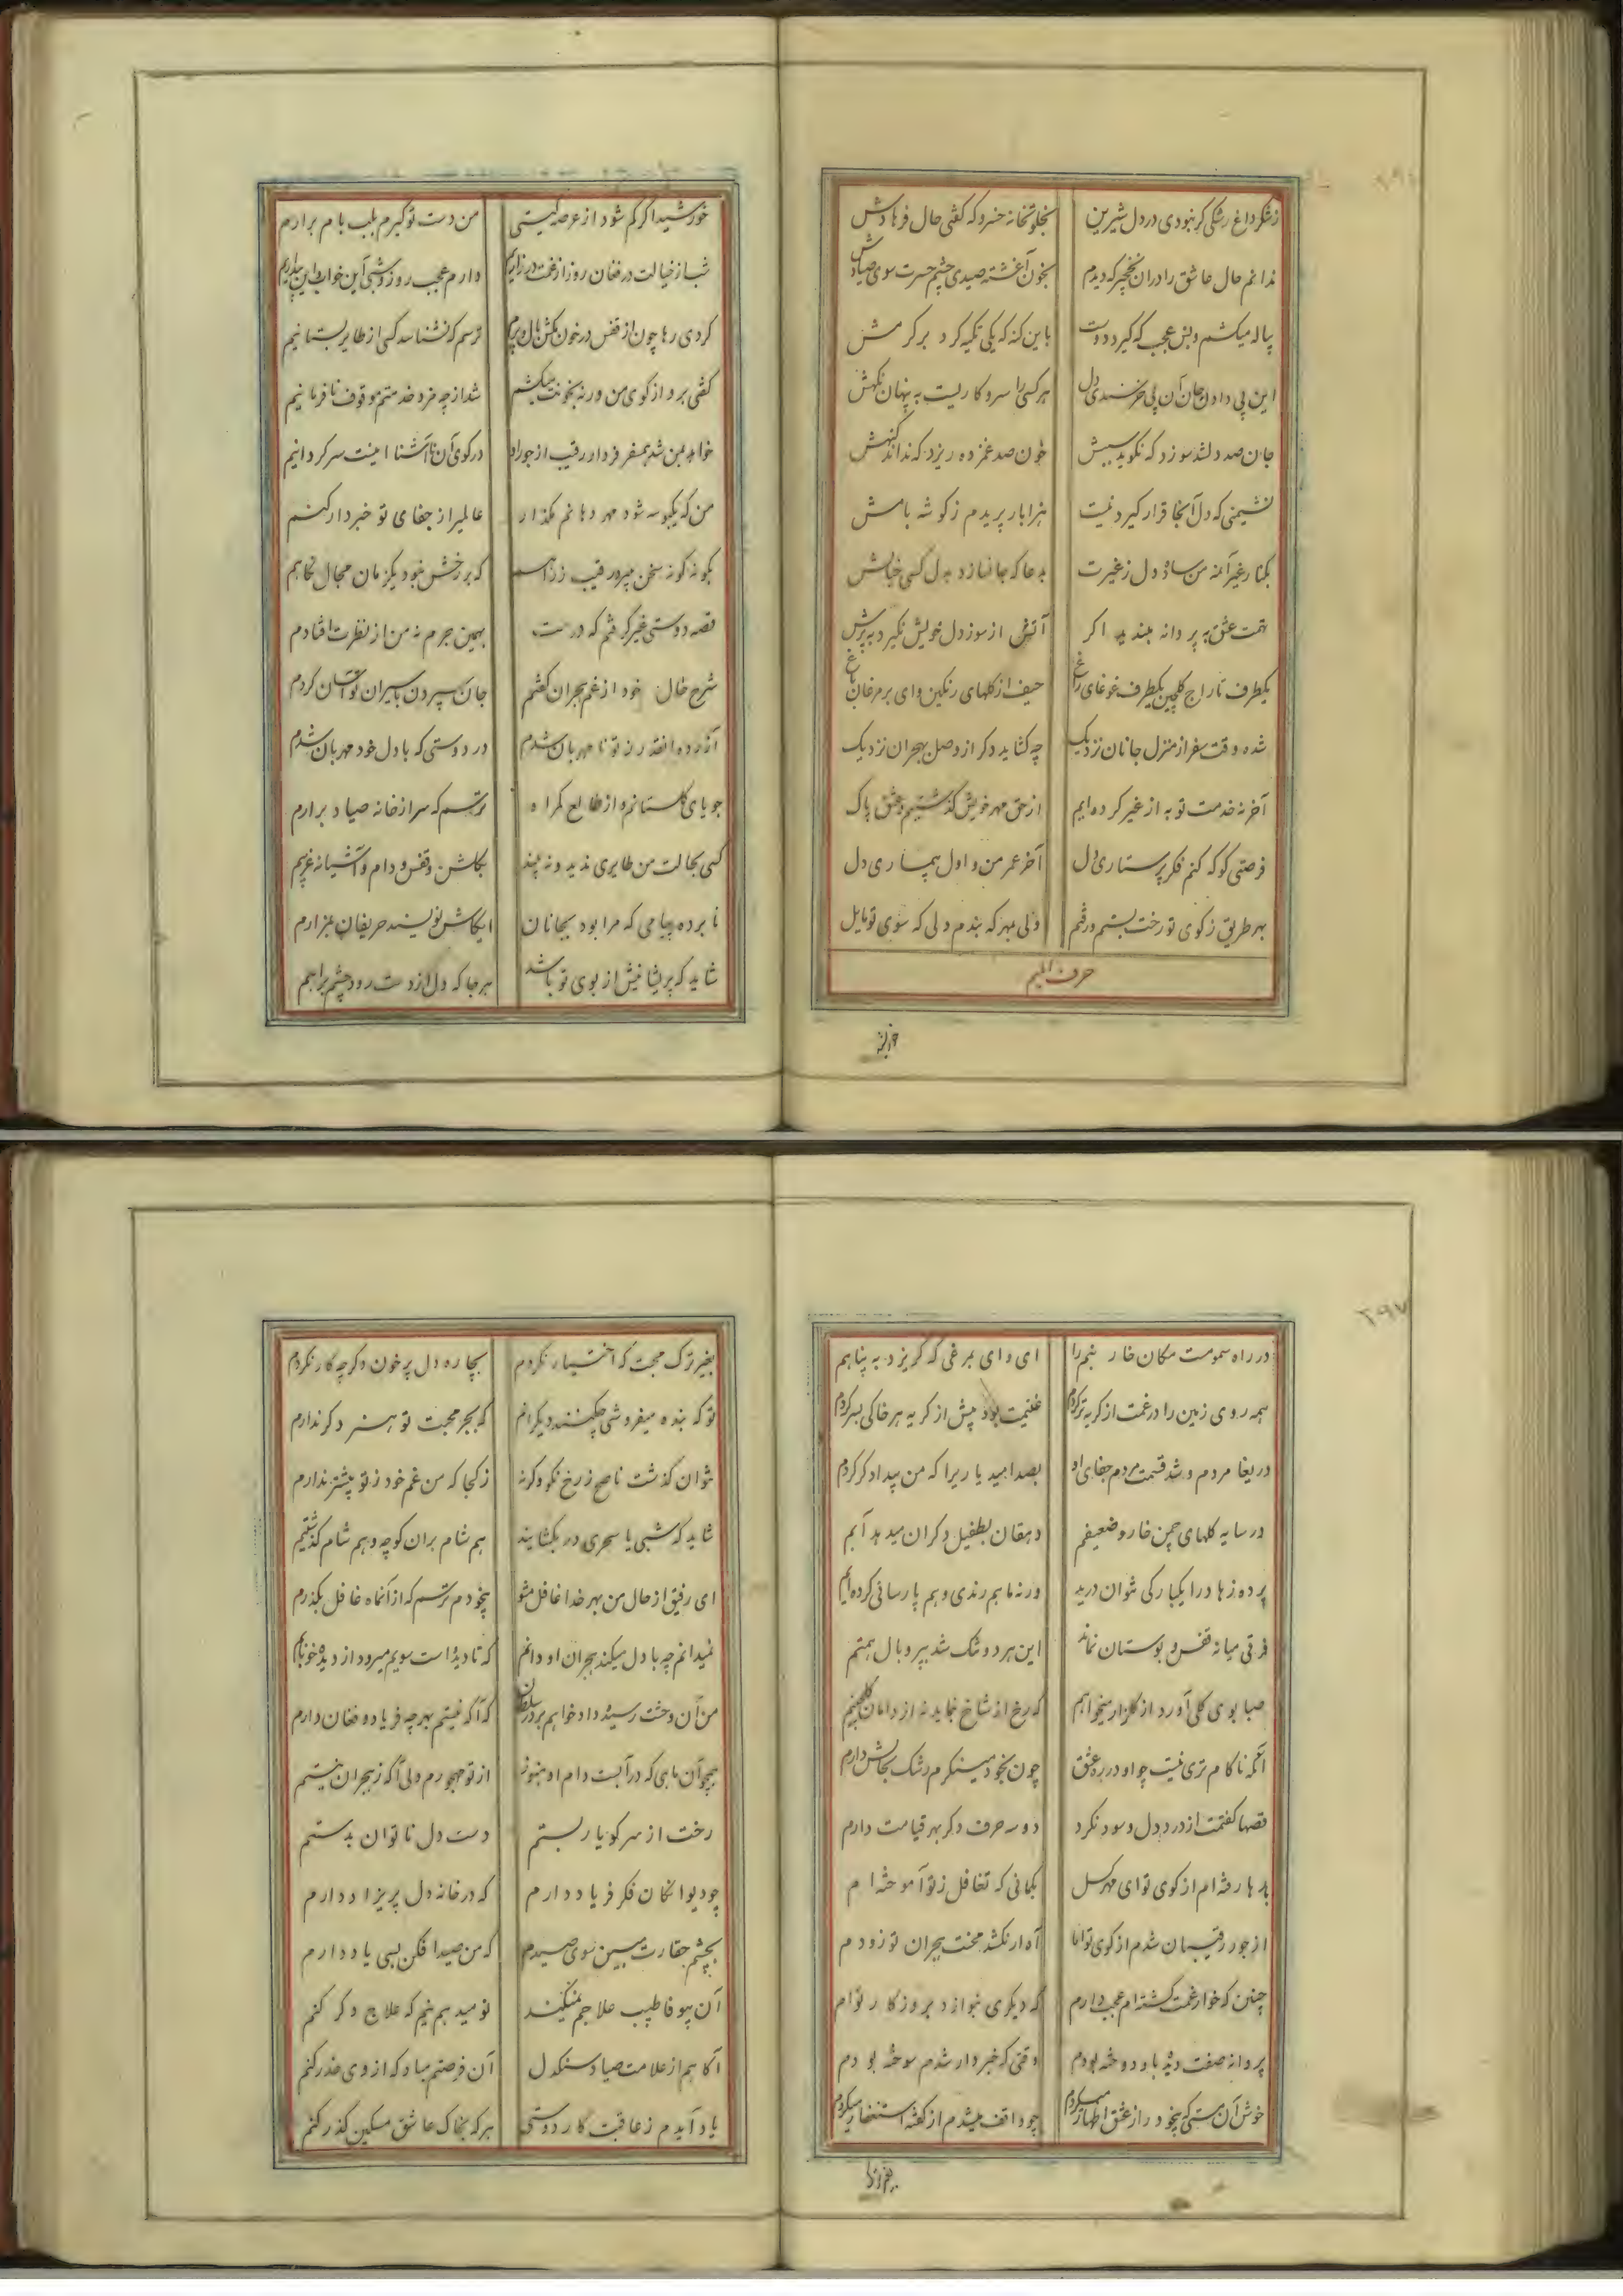 زشکر داغ رشکی گر نبودی در دل شیرین بخلوتخانه خسرو که گفتی حال فرهادش
ندانم حال عاشق را در ان نخچیر که دیدم بخون آغشته صیدی چشم حسرت سوی صیادش
پیاله میکشم وبس عجب که گیرد دوست باین گنه که یکی تکیه کرد بر کرمش
این پی دادن جان آن پی خرسندی دل هر کسی را سرو کاریست به پنهان نگهش
جان صد دلشده سوزد که نگوید سببش خون صد غمزده ریزد که نداند گنهش
نشیمنی که دل آنجا قرار گیرد نیست هزار بار پریدم ز گوشه بامش
بکنار غیر آمنه من ساده دل ز غیرت بدعا که جا نسازد بدل کسی خیالش
تهمت عشق به پروانه مبندید اگر آتش از سوز دل خویش نگیرد به پرش
یکطرف تاراج گلچین یکطرف غوغای زاغ حیف از گلهای رنگین وای بر مرغان باغ
شده وقت سفر از منزل جانان نزدیک چه گشاید دگر از وصل بهجران نزدیک
آخر نه خدمت توبه از غیر کرده‌ایم از حق مهر خویش گذشتیم و عشق پاک
فرصتی کو که کنم فکر پرستاری دل آخر عمر من و اول بیماری دل
بهر طریق ز کوی تو رخت بستم و رفتم ولی بهر که بندم دلی که سوی تو مایل
حرف المیم
خورشید اگر گم شود از عرصه گیتی من دست تو گیرم بلب بام برارم
شب از خیالت در فغان روز از غمت در زاریم دارم عجب روز و شبی آن خوابم این بیداریم
کردی رها چون از قفس در خون بکش بال و پرم ترسم که نشناسد کسی از طایر بستانیم
گفتی برو از کوی من ورنه بخونت میکشم شد از چه مزد خدمتم موقوف نافرمانیم
خواهد بمن شد همسفر فردا رقیب از جور او در کوی آن ناآشنا اینست سرگردانیم
من که یکبوسه شود مهر دهانم مگذار عالمیرا ز جفای تو خبردار کنم
بگونه گونه سخن میبرد رقیب ز راهم که بر رخش نبود یکزمان مجال نگاهم
قصه دوستی غیر گرفتم که درست بهمین جرم نه من از نظرت افتادم
شرح حال خود از غم هجران گفتم جان سپردن باسیران تو آسان کردم
آزرده انقدر ز تو نا مهربان شدم در دوستی که با دل خود مهربان شدم
جویای گلستانم و از طالع گمراه ترسم که سر از خانه صیاد برارم
کسی بحالت من طایری ندید و نه بیند بگلشن و قفس و دام و آشیانه غریبم
نابرده پیامی که مرا بود بجانان ایکاش نویسند حریفان بمزارم
شاید که پریشانیش از بوی تو باشد هر جا که دل از دست رود چشم براهم
در راه سمومست مکان خار و خسم را ای وای بمرغی که گریزد به پناهم
همه روی زمین را در غمت از گریه تر کردم غنیمت بود پیش از گریه هر خاکی بسر کردم
دریغا مردم و شد قسمت مردم جفای او بصد امید یا ریرا که من بیدادگر کردم
در سایه گلهای چمن خار و ضعیفم دهقان بطفیل دگران میدهد آبم
پرده زهاد را یکبارگی نتوان درید ورنه ما هم رندی و هم پارسائی کرده‌ایم
فرقی میانه قفس و بوستان نماند این هر دو تنگ شد بپر و بال همتم
صبا بوی گلی آورد از گلزار میخواهم که رخ از شاخ بنماید نه از دامان گلچینم
آنکه ناکام تری نیست چو او در ره عشق چون بخود مینگرم رشک بحالش دارم
قصها گفتمت از درد دل و سود نکرد دو سه حرف دگر بهر قیامت دارم
بارها رفته‌ام از کوی تو ای مهرگسل بگمانی که تغافل ز تو آموخته‌ام
از جور رقیبان شدم از کوی تو اما آه ار نکشد محنت هجران تو زودم
چنین که خوار غمت گشته‌ام عجب دارم که دیگری ننوازد بروزگار توام
پروانه صفت دیده باو دوخته بودم وقتی که خبردار شدم سوخته بودم
خوش آن مستی که بیخود راز عشق اظهار میکردم چو واقف میشدم از گفته استغفار میکردم
بغیر ترک محبت که اختیار نکردم بچاره دل پر خون دگر چه کار نکردم
تو که بنده میفروشی چکنند دیگرانم که بجز محبت تو هنر دگر ندارم
نتوان گذشت ناصح ز رخ نکو وگرنه ز کجا که من غم خود ز تو بیشتر ندارم
شاید که شبی یا سحری در بگشایند هم شام بران کوچه و هم شام گذشتیم
ای رفیق از حال من بهر خدا غافل مشو بیخودم ترسم که از آنماه غافل بگذرم
نمیدانم چه با دل میکند هجران او دانم که تا دیده است سویم میرود از دیده خونابم
من آن وحشت رسیده دادخواهم بر در سلطان که آگه نیستم بهر چه فریاد و فغان دارم
همچو آن ماهی که در آبست دام او هنوز از تو مهجورم ولی آگه ز هجران نیستم
رخت از سر کوی یار بستم دست دل ناتوان بدستم
چو دیوانگان فکر فریاد دارم که در خانه دل پریزاد دارم
بچشم حقارت مبین سوی صیدم که من صید افکن بسی یاد دارم
آن بیوفا طبیب علاجم نمیکند نومید هم نیم که علاج دگر کنم
آگاهم از علامت صیاد سنگدل آن فرصتم مباد که از وی حذر کنم
یاد آیدم ز عاقبت کار دوستی هر گه بخاک عاشق مسکین گذر کنم